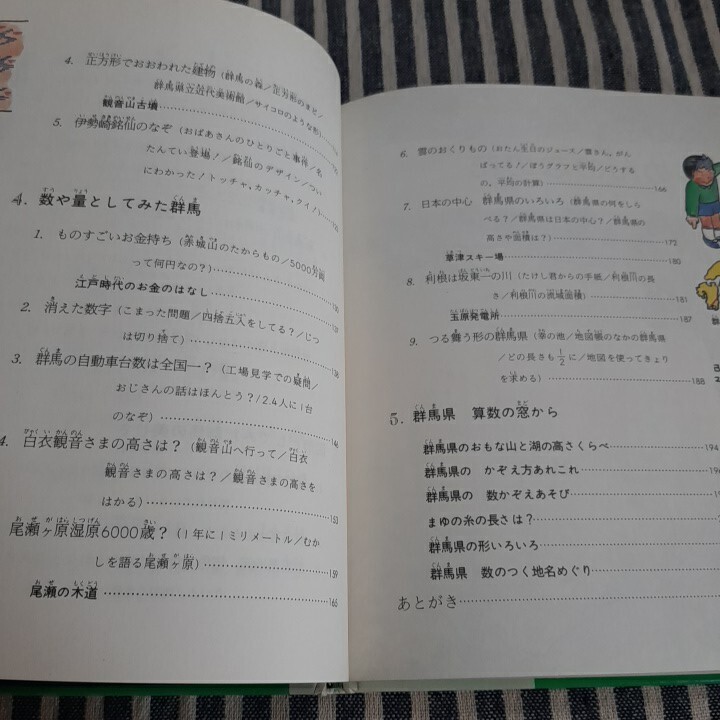 4. 正方形でおおわれた建物（群馬の森／正方形のまど／
群馬県立近代美術館／サイコロのような形）
観音山古墳
5. 伊勢崎銘仙のなぞ（おばあさんのひとりごと事件／名
たんてい登場！／銘仙のデザイン／つい
にわかった！トッチャ，カッチャ，クイ！）
4. 数や量としてみた群馬
1. ものすごいお金持ち（赤城山のたからもの／5000万両
って何円なの？）
江戸時代のお金のはなし
2. 消えた数字（こまった問題／四捨五入をしてる？／じつ
は切り捨て）
3. 群馬の自動車台数は全国一？（工場見学での疑問／
おじさんの話はほんとう？／2.4人に1台
のなぞ） 146
4. 白衣観音さまの高さは？（観音山へ行って／白衣
観音さまの高さは？／観音さまの高さを
はかる） 153
尾瀬ヶ原湿原6000歳？（1年に1ミリメートル／むか
しを語る尾瀬ヶ原） 159
尾瀬の木道 165
6. 雲のおくりもの（おたん生日のジュース／雷さん，がん
ばってる！／ぼうグラフと平均／どうする
の，平均の計算） 166
7. 日本の中心 群馬県のいろいろ（群馬県の何をしら
べる？／群馬県は日本の中心？／群馬県の
高さや面積は？） 172
草津スキー場 180
8. 利根は坂東一の川（たけし君からの手紙／利根川の長
さ／利根川の流域面積） 181
玉原発電所 187
9. つる舞う形の群馬県（傘の池／地図帳のなかの群馬県
／どの長さも1/2に／地図を使ってきょり
を求める） 188
5. 群馬県 算数の窓から
群馬県のおもな山と湖の高さくらべ 194
群馬県の かぞえ方あれこれ
群馬県の 数かぞえあそび
まゆの糸の長さは？
群馬県の形いろいろ
群馬県 数のつく地名めぐり
あとがき